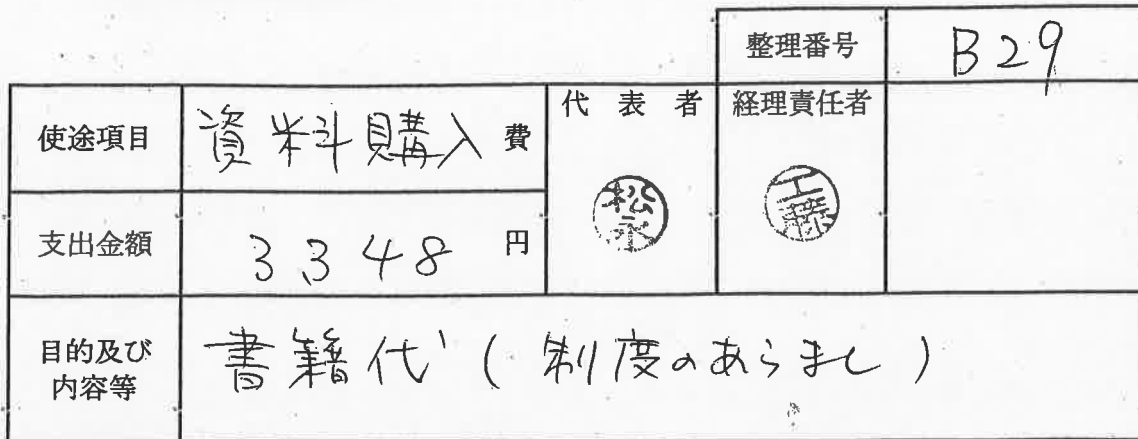 整理番号 B29
使途項目 資料購入費 代表者 経理責任者
松永 工藤
支出金額 3348 円
目的及び
内容等
書籍代(制度のあらまし)